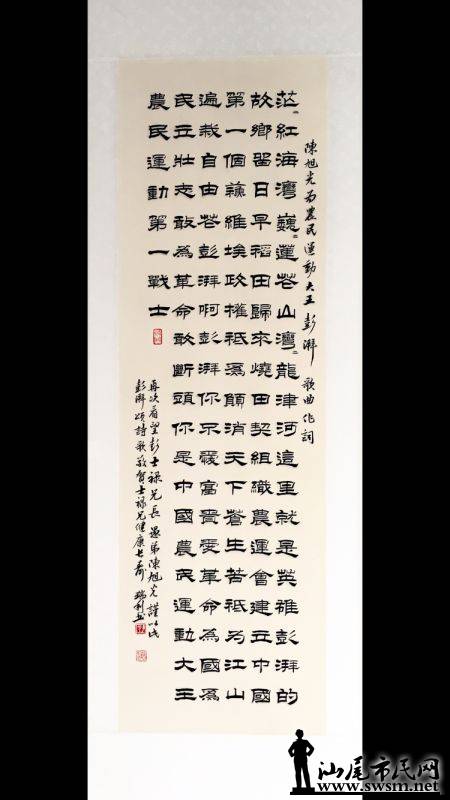 陳旭光为農民運動大王彭湃歌曲作詞
茫々紅海灣巍々蓮花山灣々龍津河這里就是英雄彭湃的
故鄉留日早稻田歸來燒田契組織農運會建立中國
第一個蘇維埃政權祇為願消天下蒼生苦祇为江山
遍栽自由花彭湃啊彭湃你不愛富貴愛革命為國為
民立壯志敢為革命敢斷頭你是中國農民運動大王
農民運動第一戰士
再次看望彭士禄兄長愚弟陳旭光謹以此
彭湃頌詩歌敬賀士禄兄健康長壽瑞利书
汕尾市民网
www.swsm.net